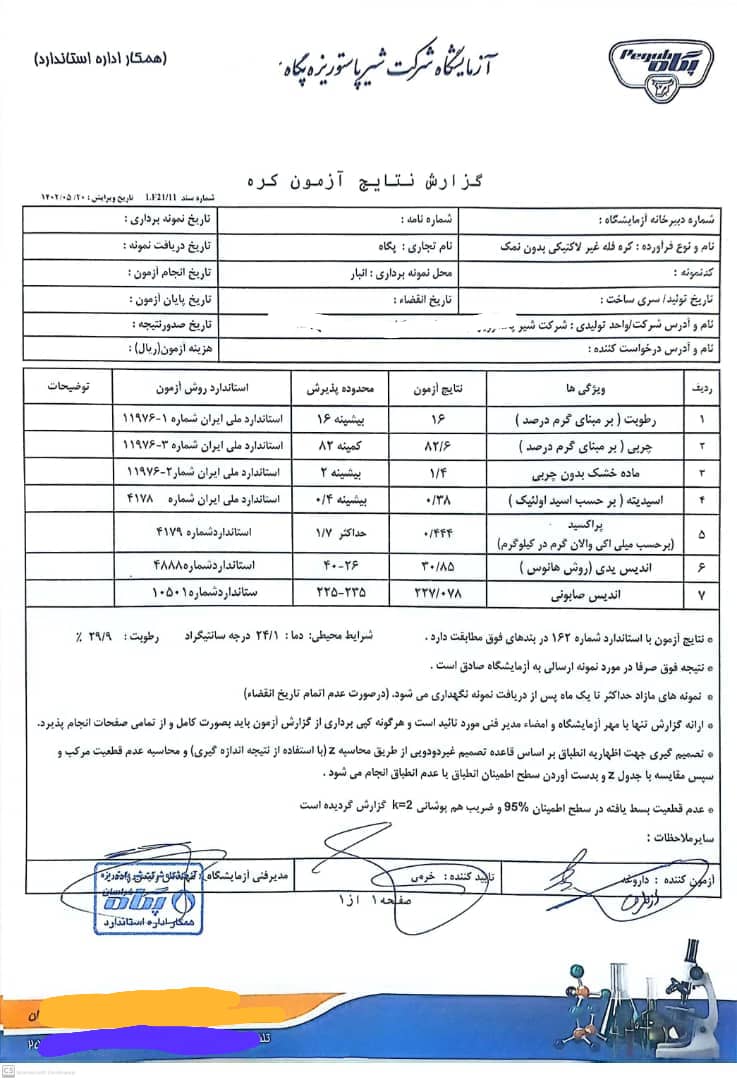 (همکار اداره استاندارد)
آزمایشگاه شرکت شیر پاستوریزه پگاه
Pegah
پگاه
گزارش نتایج آزمون کره
شماره سند LF21/11 تاریخ ویرایش : ۱۴۰۲/۰۵/۲۰
شماره دبیرخانه آزمایشگاه : شماره نامه : تاریخ نمونه برداری :
نام و نوع فرآورده : کره فله غیر لاکتیکی بدون نمک نام تجاری : پگاه تاریخ دریافت نمونه :
کدنمونه : محل نمونه برداری : انبار تاریخ انجام آزمون :
تاریخ تولید/ سری ساخت : تاریخ انقضاء : تاریخ پایان آزمون :
نام و آدرس شرکت/واحد تولیدی : شرکت شیر تاریخ صدورنتیجه :
نام و آدرس درخواست کننده : هزینه آزمون(ریال) :
ردیف ویژگی ها نتایج آزمون محدوده پذیرش استاندارد روش آزمون توضیحات
۱ رطوبت ( بر مبنای گرم درصد ) ۱۶ بیشینه ۱۶ استاندارد ملی ایران شماره ۱-۱۱۹۷۶
۲ چربی ( بر مبنای گرم درصد ) ۸۲/۶ کمینه ۸۲ استاندارد ملی ایران شماره ۳-۱۱۹۷۶
۳ ماده خشک بدون چربی ۱/۴ بیشینه ۲ استاندارد ملی ایران شمار۲-۱۱۹۷۶
۴ اسیدیته ( بر حسب اسید اولئیک ) ۰/۳۸ بیشینه ۰/۴ استاندارد ملی ایران شماره ۴۱۷۸
۵ پراکسید (برحسب میلی اکی والان گرم در کیلوگرم) ۰/۴۴۴ حداکثر ۱/۷ استانداردشماره ۴۱۷۹
۶ اندیس یدی (روش هانوس ) ۳۰/۸۵ ۴۰-۲۶ استانداردشماره۴۸۸۸
۷ اندیس صابونی ۲۲۷/۰۷۸ ۲۲۵-۲۳۵ ستانداردشماره۱۰۵۰۱
* نتایج آزمون با استاندارد شماره ۱۶۲ در بندهای فوق مطابقت دارد . شرایط محیطی: دما : ۲۴/۱ درجه سانتیگراد رطوبت : ۲۹/۹ ٪
* نتیجه فوق صرفا در مورد نمونه ارسالی به آزمایشگاه صادق است .
* نمونه های مازاد حداکثر تا یک ماه پس از دریافت نمونه نگهداری می شود. (درصورت عدم اتمام تاریخ انقضاء)
* ارائه گزارش تنها با مهر آزمایشگاه و امضاء مدیر فنی مورد تائید است و هرگونه کپی برداری از گزارش آزمون باید بصورت کامل و از تمامی صفحات انجام پذیرد.
* تصمیم گیری جهت اظهاریه انطباق بر اساس قاعده تصمیم غیردودویی از طریق محاسبه z (با استفاده از نتیجه اندازه گیری) و محاسبه عدم قطعیت مرکب و
سپس مقایسه با جدول z و بدست آوردن سطح اطمینان انطباق یا عدم انطباق انجام می شود .
* عدم قطعیت بسط یافته در سطح اطمینان %95 و ضریب هم پوشانی k=2 گزارش گردیده است
سایرملاحظات :
آزمون کننده : داروغه تایید کننده : خرمی مدیرفنی آزمایشگاه :
پگاه
همکار اداره استاندارد
صفحه۱ از۱
ان
تلف
۲۵
CS